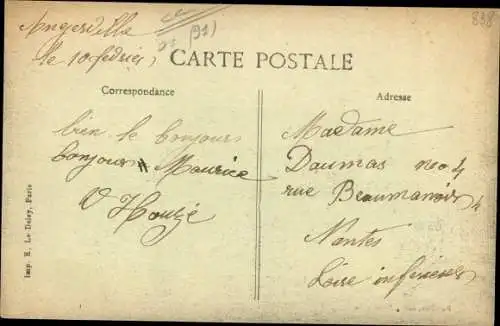 Angerville
le 10 février
(91)
838
CARTE POSTALE
Correspondance
Adresse
bien le bonjour
bonjour Maurice
Madame
Daumas no 4
rue Beaumanoir 4
Nantes
Loire inférieure
Imp. E. Le Deley, Paris